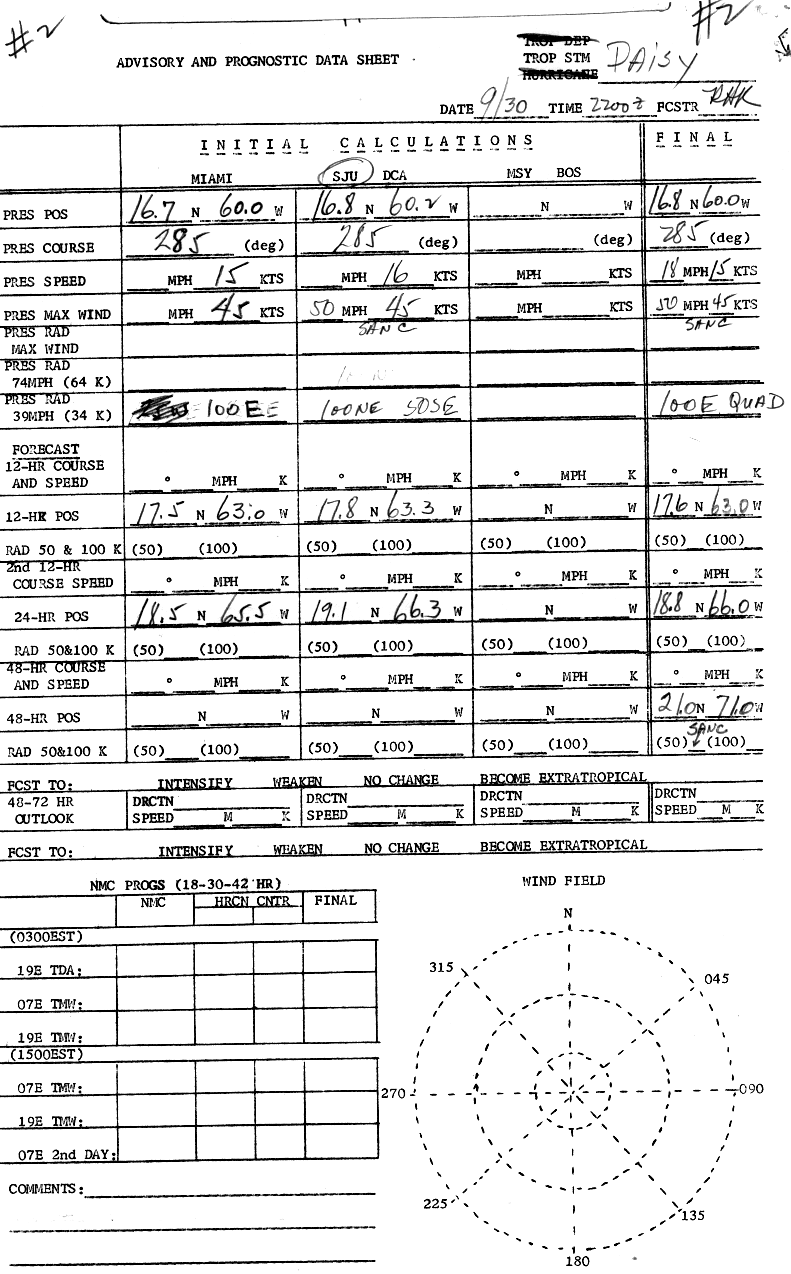 #2 #2
TROP DEP
ADVISORY AND PROGNOSTIC DATA SHEET TROP STM DAISY
HURRICANE
DATE 9/30 TIME 2200Z FCSTR RHK
INITIAL CALCULATIONS FINAL
MIAMI SJU DCA MSY BOS
PRES POS 16.7 N 60.0 W 16.8 N 60.2 W N W 16.8 N 60.0 W
PRES COURSE 285 (deg) 285 (deg) (deg) 285 (deg)
PRES SPEED MPH 15 KTS MPH 16 KTS MPH KTS 18 MPH 15 KTS
PRES MAX WIND MPH 45 KTS 50 MPH 45 KTS MPH KTS 50 MPH 45 KTS
PRES RAD SANC SANC
MAX WIND
PRES RAD
74MPH (64 K)
PRES RAD
39MPH (34 K) 100 E 100NE 50SE 100E QUAD
FORECAST
12-HR COURSE
AND SPEED ° MPH K ° MPH K ° MPH K ° MPH K
12-HR POS 17.5 N 63.0 W 17.8 N 63.3 W N W 17.6 N 63.0 W
RAD 50 & 100 K (50) (100) (50) (100) (50) (100) (50) (100)
2nd 12-HR
COURSE SPEED ° MPH K ° MPH K ° MPH K ° MPH K
24-HR POS 18.5 N 65.5 W 19.1 N 66.3 W N W 18.8 N 66.0 W
RAD 50&100 K (50) (100) (50) (100) (50) (100) (50) (100)
48-HR COURSE
AND SPEED ° MPH K ° MPH K ° MPH K ° MPH K
48-HR POS N W N W N W 21.0 N 71.0 W
SANC
RAD 50&100 K (50) (100) (50) (100) (50) (100) (50) (100)
FCST TO: INTENSIFY WEAKEN NO CHANGE BECOME EXTRATROPICAL
48-72 HR DRCTN DRCTN DRCTN DRCTN
OUTLOOK SPEED M K SPEED M K SPEED M K SPEED M K
FCST TO: INTENSIFY WEAKEN NO CHANGE BECOME EXTRATROPICAL
NMC PROGS (18-30-42 HR)
NMC HRCN CNTR FINAL
(0300EST)
19E TDA:
07E TMW:
19E TMW:
(1500EST)
07E TMW:
19E TMW:
07E 2nd DAY:
COMMENTS:
WIND FIELD
N
315 045
270 090
225 135
180